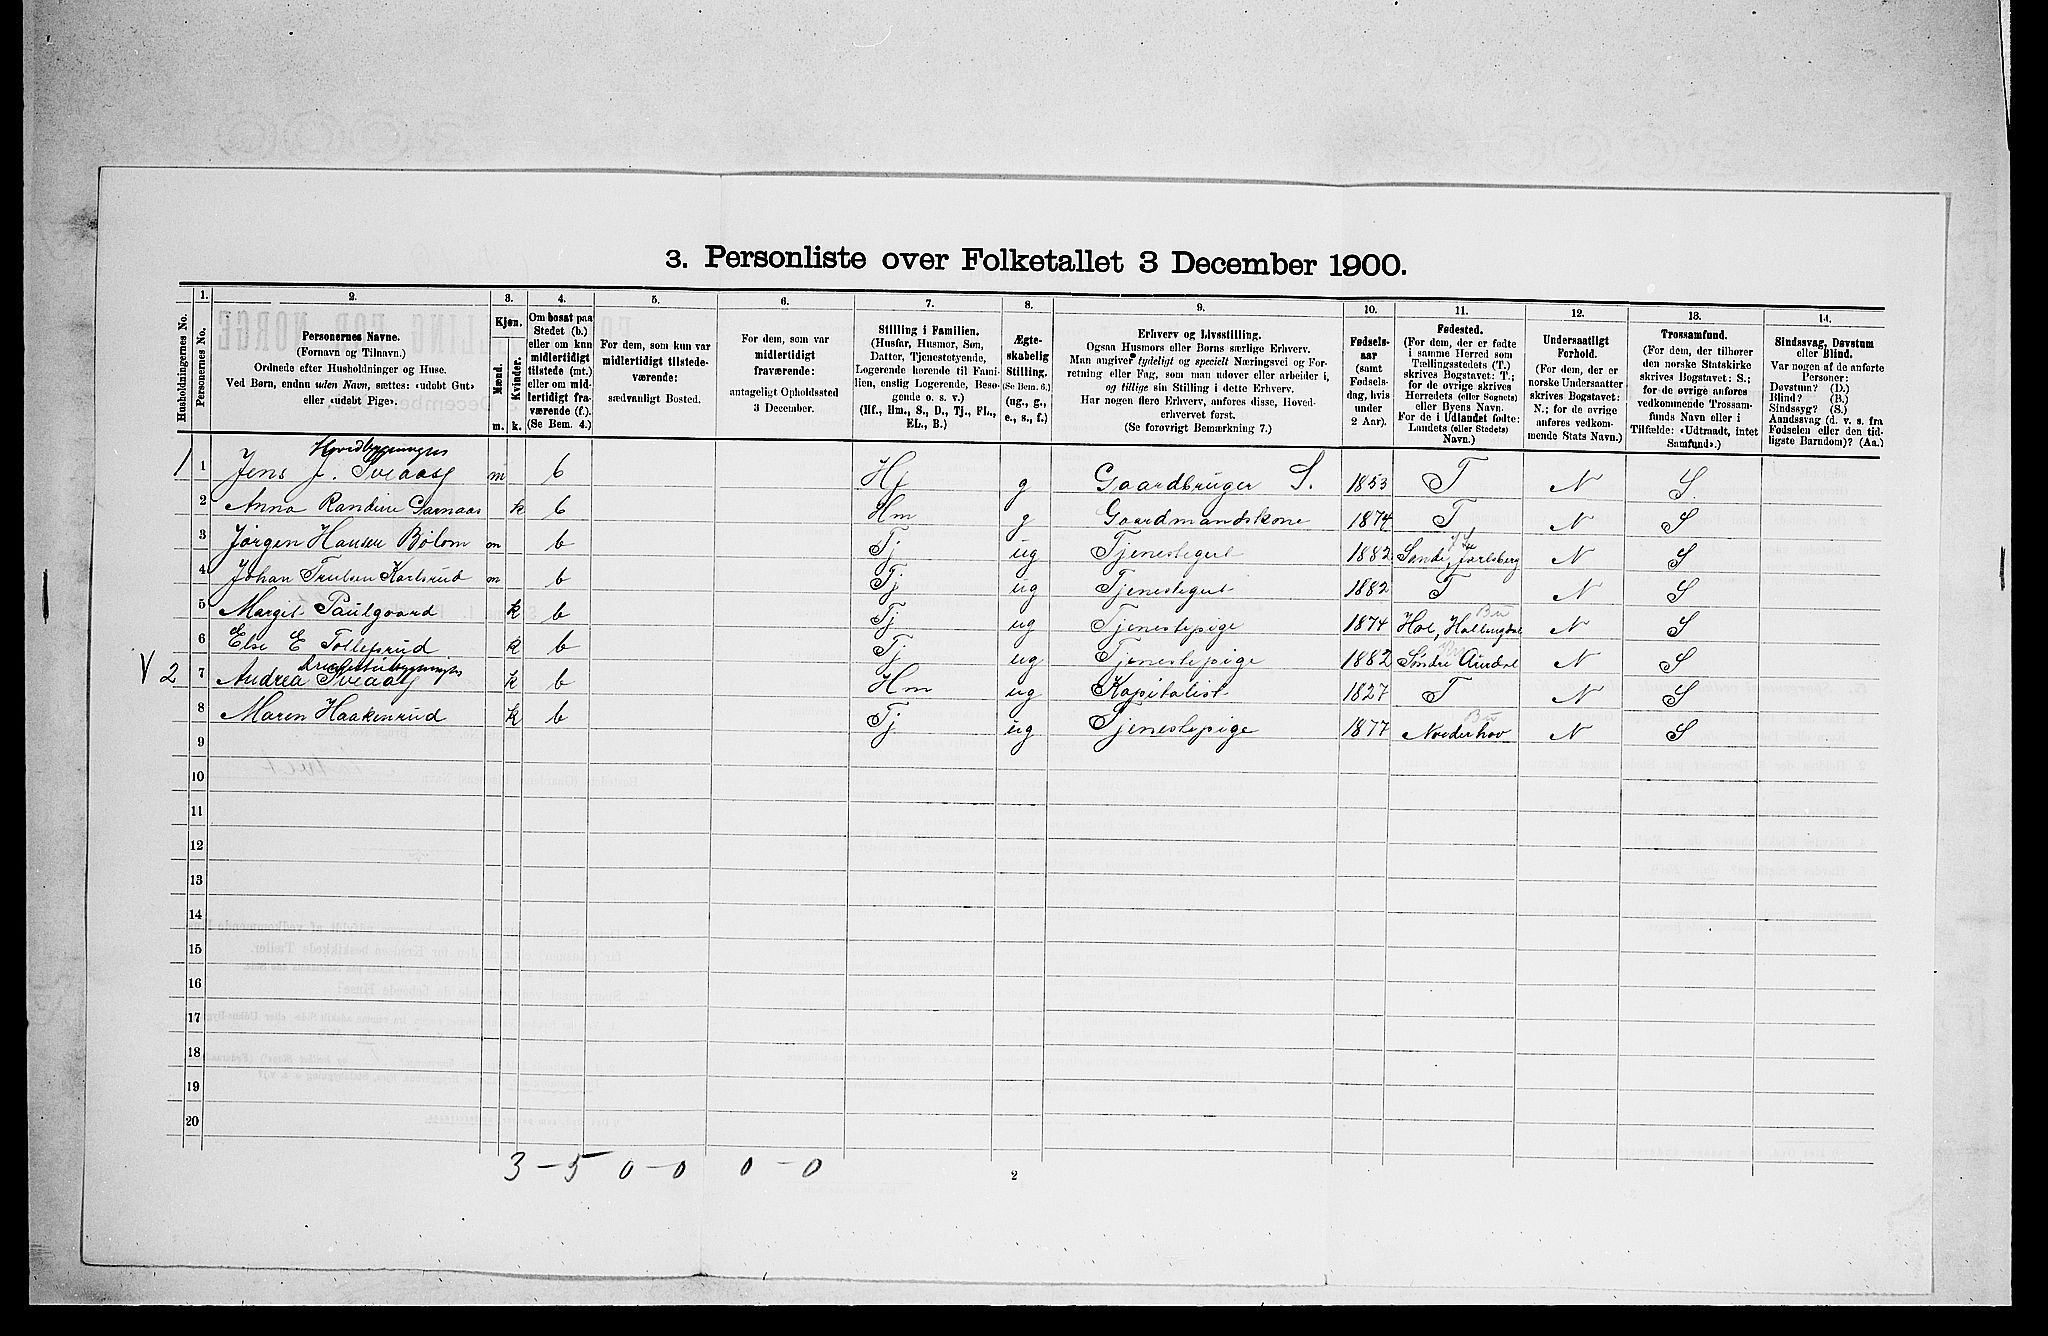 3. Personliste over Folketallet 3 December 1900.
Husholdningernes No.
1.
Personernes No.
2.
Personernes Navne.
(Fornavn og Tilnavn.)
Ordnede efter Husholdninger og Huse.
Ved Børn, endnu uden Navn, sættes: «udøbt Gut»
eller «udøbt Pige».
3.
Kjøn.
Mænd.
Kvinder.
m.
k.
4.
Om bosat paa
Stedet (b.)
eller om kun
midlertidigt
tilstede (mt.)
eller om mid-
lertidigt fra-
værende (f.).
(Se Bem. 4.)
5.
For dem, som kun var
midlertidigt tilstede-
værende:
sædvanligt Bosted.
6.
For dem, som var
midlertidigt
fraværende:
antageligt Opholdssted
3 December.
7.
Stilling i Familien.
(Husfar, Husmor, Søn,
Datter, Tjenestetyende,
Logerende hørende til Fami-
lien, enslig Logerende, Besø-
gende o. s. v.)
(Hf., Hm., S., D., Tj., FL.,
EL., B.)
8.
Ægte-
skabelig
Stilling.
(Se Bem. 6.)
(ug., g.,
e., s., f.)
9.
Erhverv og Livsstilling.
Ogsaa Husmors eller Børns særlige Erhverv.
Man angiver tydeligt og specielt Næringsvei og For-
retning eller Fag, som man udøver eller arbeider i,
og tillige sin Stilling i dette Erhverv.
Har nogen flere Erhverv, anføres disse, Hoved-
erhvervet først.
(Se forøvrigt Bemærkning 7.)
10.
Fødsels-
aar
(samt
Fødsels-
dag, hvis
under
2 Aar).
11.
Fødested.
(For dem, der er fødte
i samme Herred som
Tællingsstedets (T.)
skrives Bogstavet: T.;
for de øvrige skrives
Herredets (eller Sognets)
eller Byens Navn.
For de i Udlandet fødte:
Landets (eller Stedets)
Navn.)
12.
Undersaatligt
Forhold.
(For dem, der er
norske Undersaatter
skrives Bogstavet:
N.; for de øvrige
anføres vedkom-
mende Stats Navn.)
13.
Trossamfund.
(For dem, der tilhører
den norske Statskirke
skrives Bogstavet: S.;
for de øvrige anføres
vedkommende Trossam-
funds Navn eller i
Tilfælde: «Udtraadt, intet
Samfund».)
14.
Sindssvag, Døvstum
eller Blind.
Var nogen af de anførte
Personer:
Døvstum? (D.)
Blind? (B.)
Sindssyg? (S.)
Aandssvag (d. v. s. fra
Fødselen eller den tid-
ligste Barndom)? (Aa.)
Hovedbygningen
1 1 Jens J. Sveaas m b Hf g Gaardbruger S. 1853 T N S.
2 Anna Randine Garnaas k b Hm g Gaardmandskone 1874 T N S
3 Jørgen Hansen Bølom m b Tj ug Tjenestegut 1882 Sande, Jarlsberg N S
4 Johan Trulsen Karlsrud m b Tj ug Tjenestegut 1882 T N S
5 Margit Paulgaard k b Tj ug Tjenestepige 1874 Hol, Hallingdal N S
6 Else E Tollefsrud k b Tj ug Tjenestepige 1882 Søndre Aurdal N S
V 2 7 Andrea Sveaas k b Hm ug Kapitalist 1827 T N S
8 Maren Haakenrud k b Tj ug Tjenestepige 1877 Norderhov N S
9
10
11
12
13
14
15
16
17
18
19
20
3 – 5 0 – 0 0 – 0
2